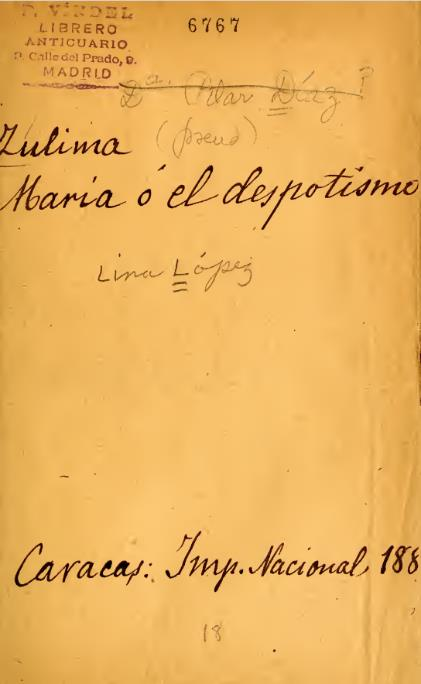 P. VINDEL
LIBRERO
ANTICUARIO
9. Calle del Prado, 9.
MADRID
6767
Dª. Pilar Díaz?
Zulima (pseud)
María ó el despotismo
Lina López
Caracas: Imp. Nacional 188
18